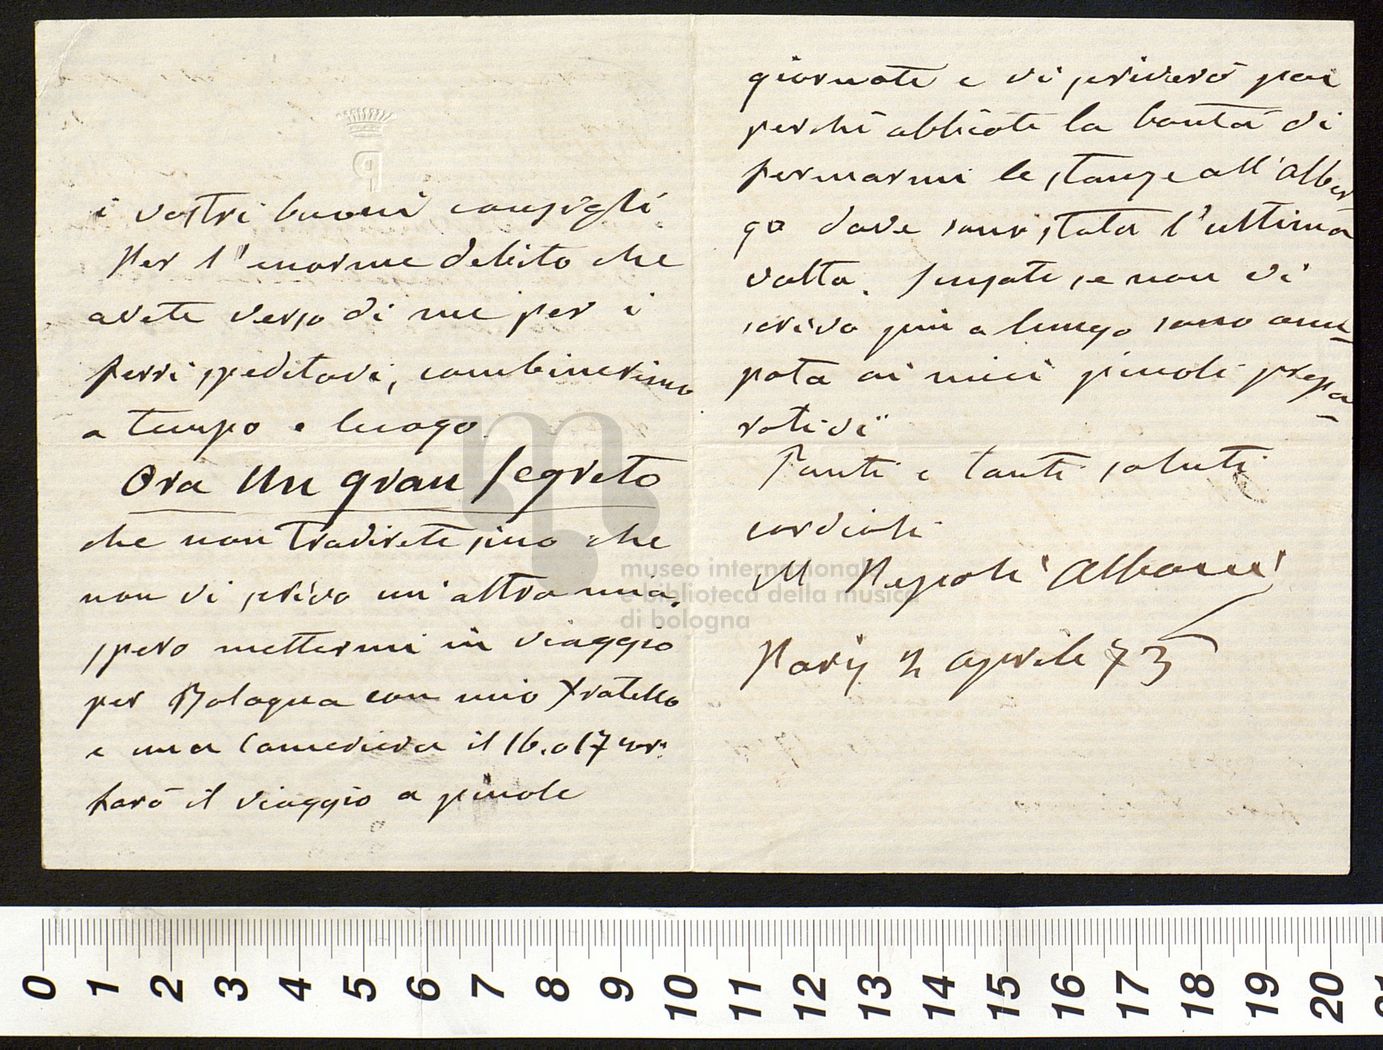 i vostri buoni consigli.
Per l'enorme debito che
avete verso di me per i
ferri speditovi, combineremo
a tempo e luogo.
Ora un gran segreto
che non tradirete sino che
non vi scrivo un'altra mia.
spero mettermi in viaggio
per Bologna con mio fratello
e una cameriera il 16. o 17 corr.
farò il viaggio a picole
giornate e vi scriverò poi
perchè abbiate la bontà di
fermarmi le stanze all'Alber
go dove sono stata l'ultima
volta. Scusate se non vi
scrivo più a lungo sono occu-
pata ai miei picoli prepa-
rativi
Tanti e tanti saluti
cordiali
M Nepoti Alboni
Parij 2 aprile 73
museo internazionale
e biblioteca della musica
di bologna
0 1 2 3 4 5 6 7 8 9 10 11 12 13 14 15 16 17 18 19 20 21